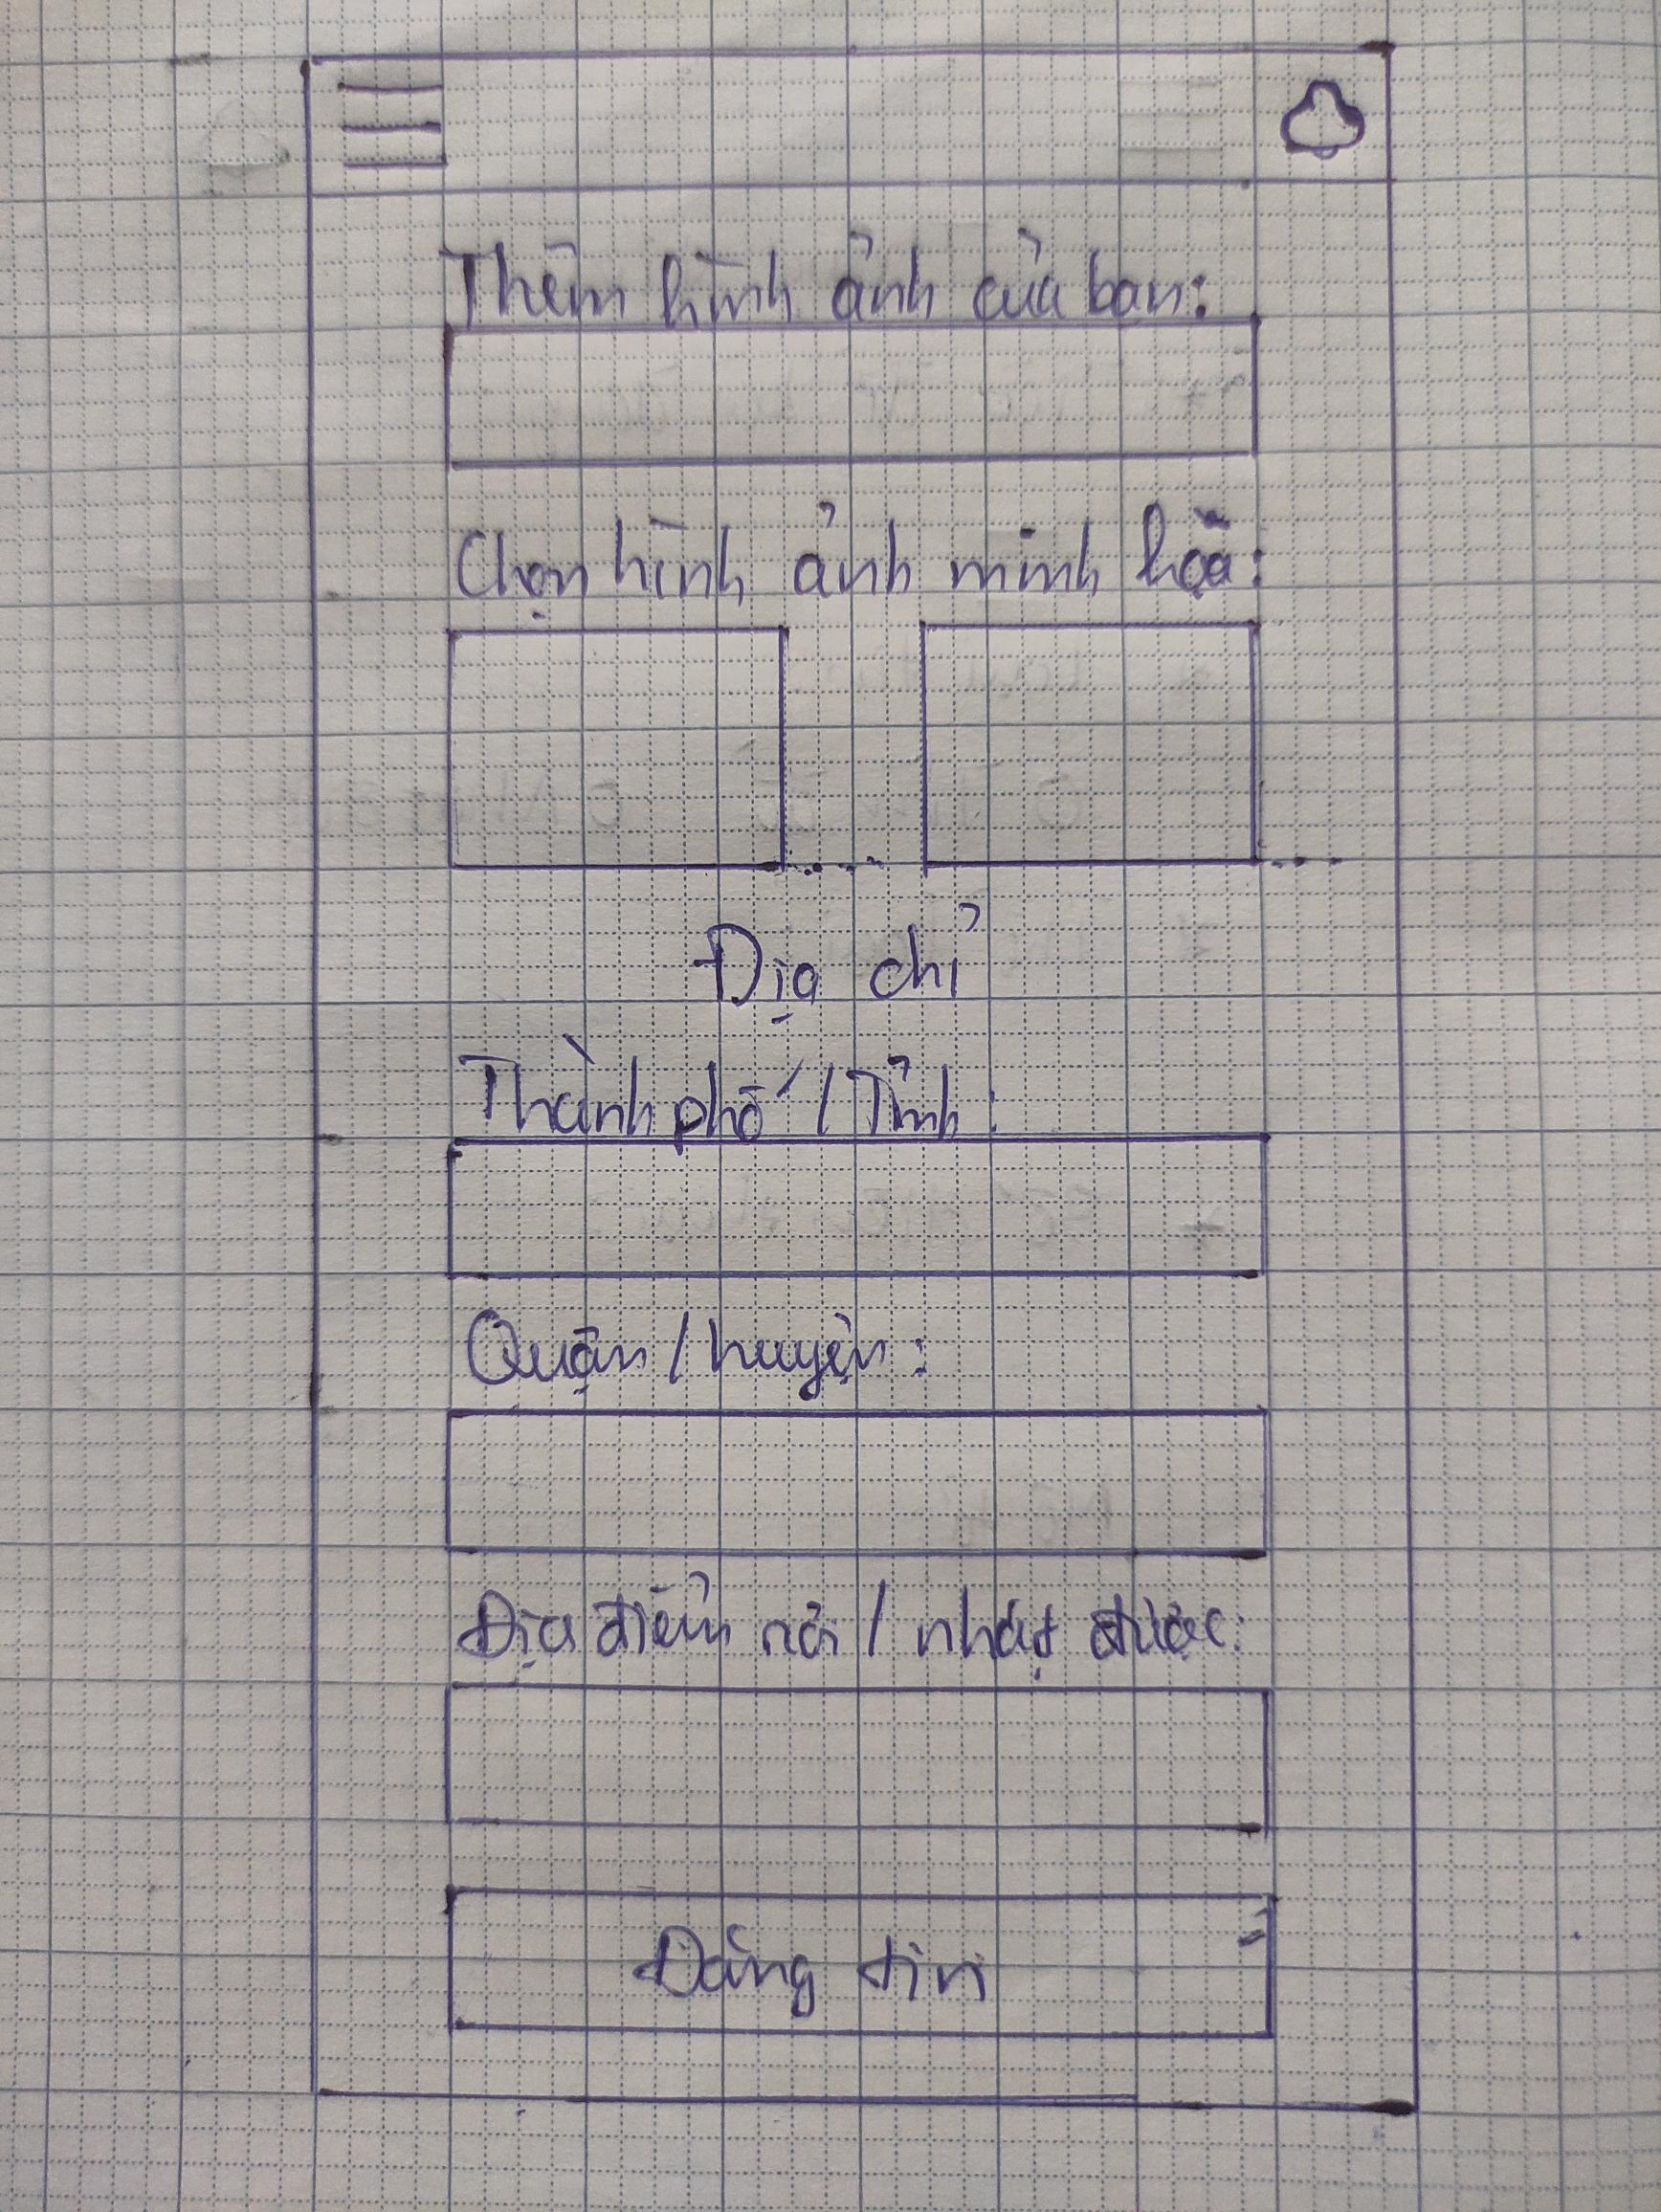 Thêm hình ảnh của bạn:
Chọn hình ảnh minh hoạ:
Địa chỉ
Thành phố / Tỉnh:
Quận / huyện:
Địa điểm rơi / nhặt được:
Đăng tin